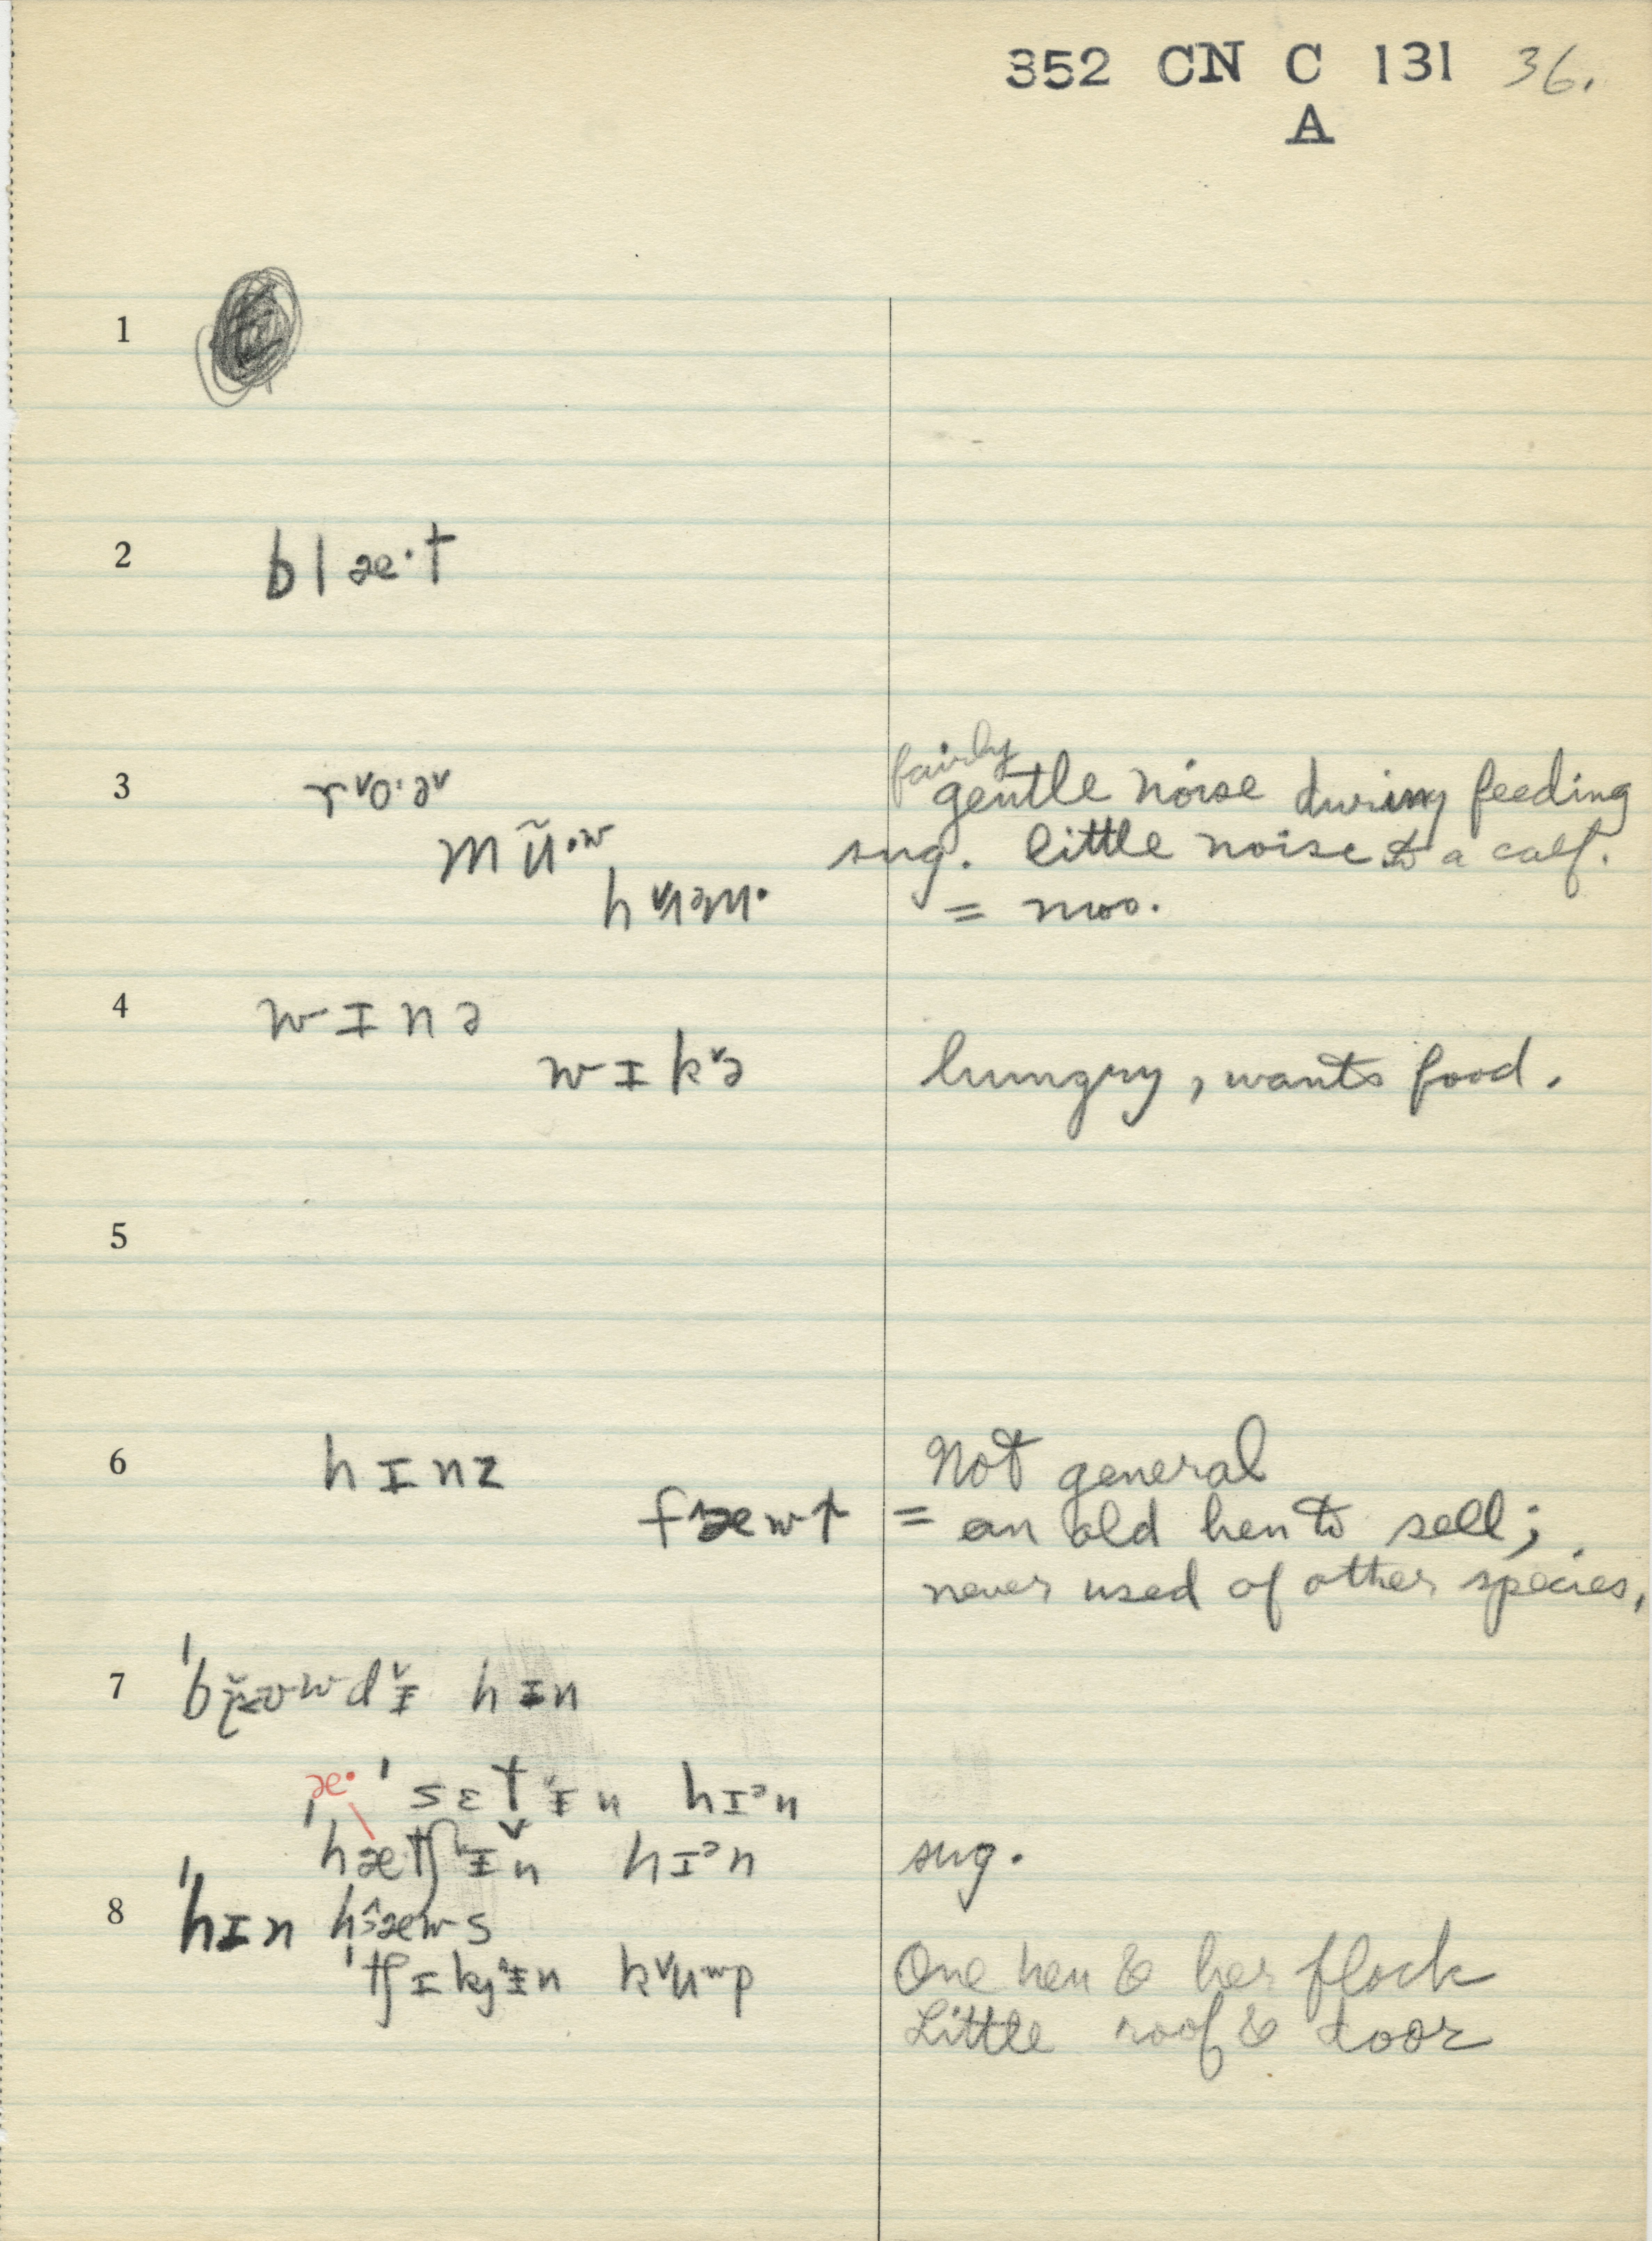 352 CN C 131 36.
A
1
2 blæ·t
3 rᵛo·əᵛ fairly gentle noise during feeding
mũ·ʷ sug. little noise to a calf.
= moo.
4 wɪnə
wɪkᵛə hungry, wants food.
5
6 hɪnz Not general
fæwt = an old hen to sell;
never used of other species.
7 hɪn
æ· ˈsɛtᵛɨn hɪᵊn
ˈhætʃᵛɨn hɪᵊn sug.
8 ˈhɪn hæws
ˈtʃɪkɨn kᵛuʷp One hen & her flock
Little roof & door